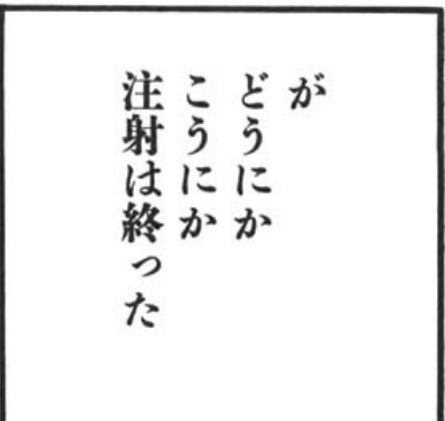 が
どうにか
こうにか
注射は終った